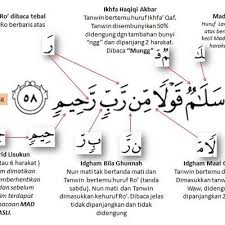 Ro' dibaca tebal
Ro berbaris atas
Ikhfa Haqiqi Akbar
Tanwin bertemu huruf Ikhfa' Qaf,
Tanwin disembunyikan 50%
didengung dgn tambahan bunyi
"ngg" dan dipanjang 2 harakat.
Dibaca "Mungg"
Mad
Huruf La
atas bert
kecil Mad
رَ
سَلَٰمٌ قَوْلًا مِّن رَّبٍّ رَّحِيمٍ ٥٨
58
Idgham Bila Ghunnah
Nun mati tak bertanda mati dan
Tanwin bertemu huruf Ro' (tanda
sabdu). Nun mati dan Tanwin
dimasukkan kehuruf Ro'. Dibaca jelas
tidak dipanjangkan dan tidak
didengung
rid Lisukun
tau 6 harakat )
m dimatikan
emberhentikan
dan sebelum
im terdapat
acaan MAD
ASLI.
Idgham Maal G
Tanwin bertemu d
Dimasukkan tanw
Waw, didengung
dipanjang 2